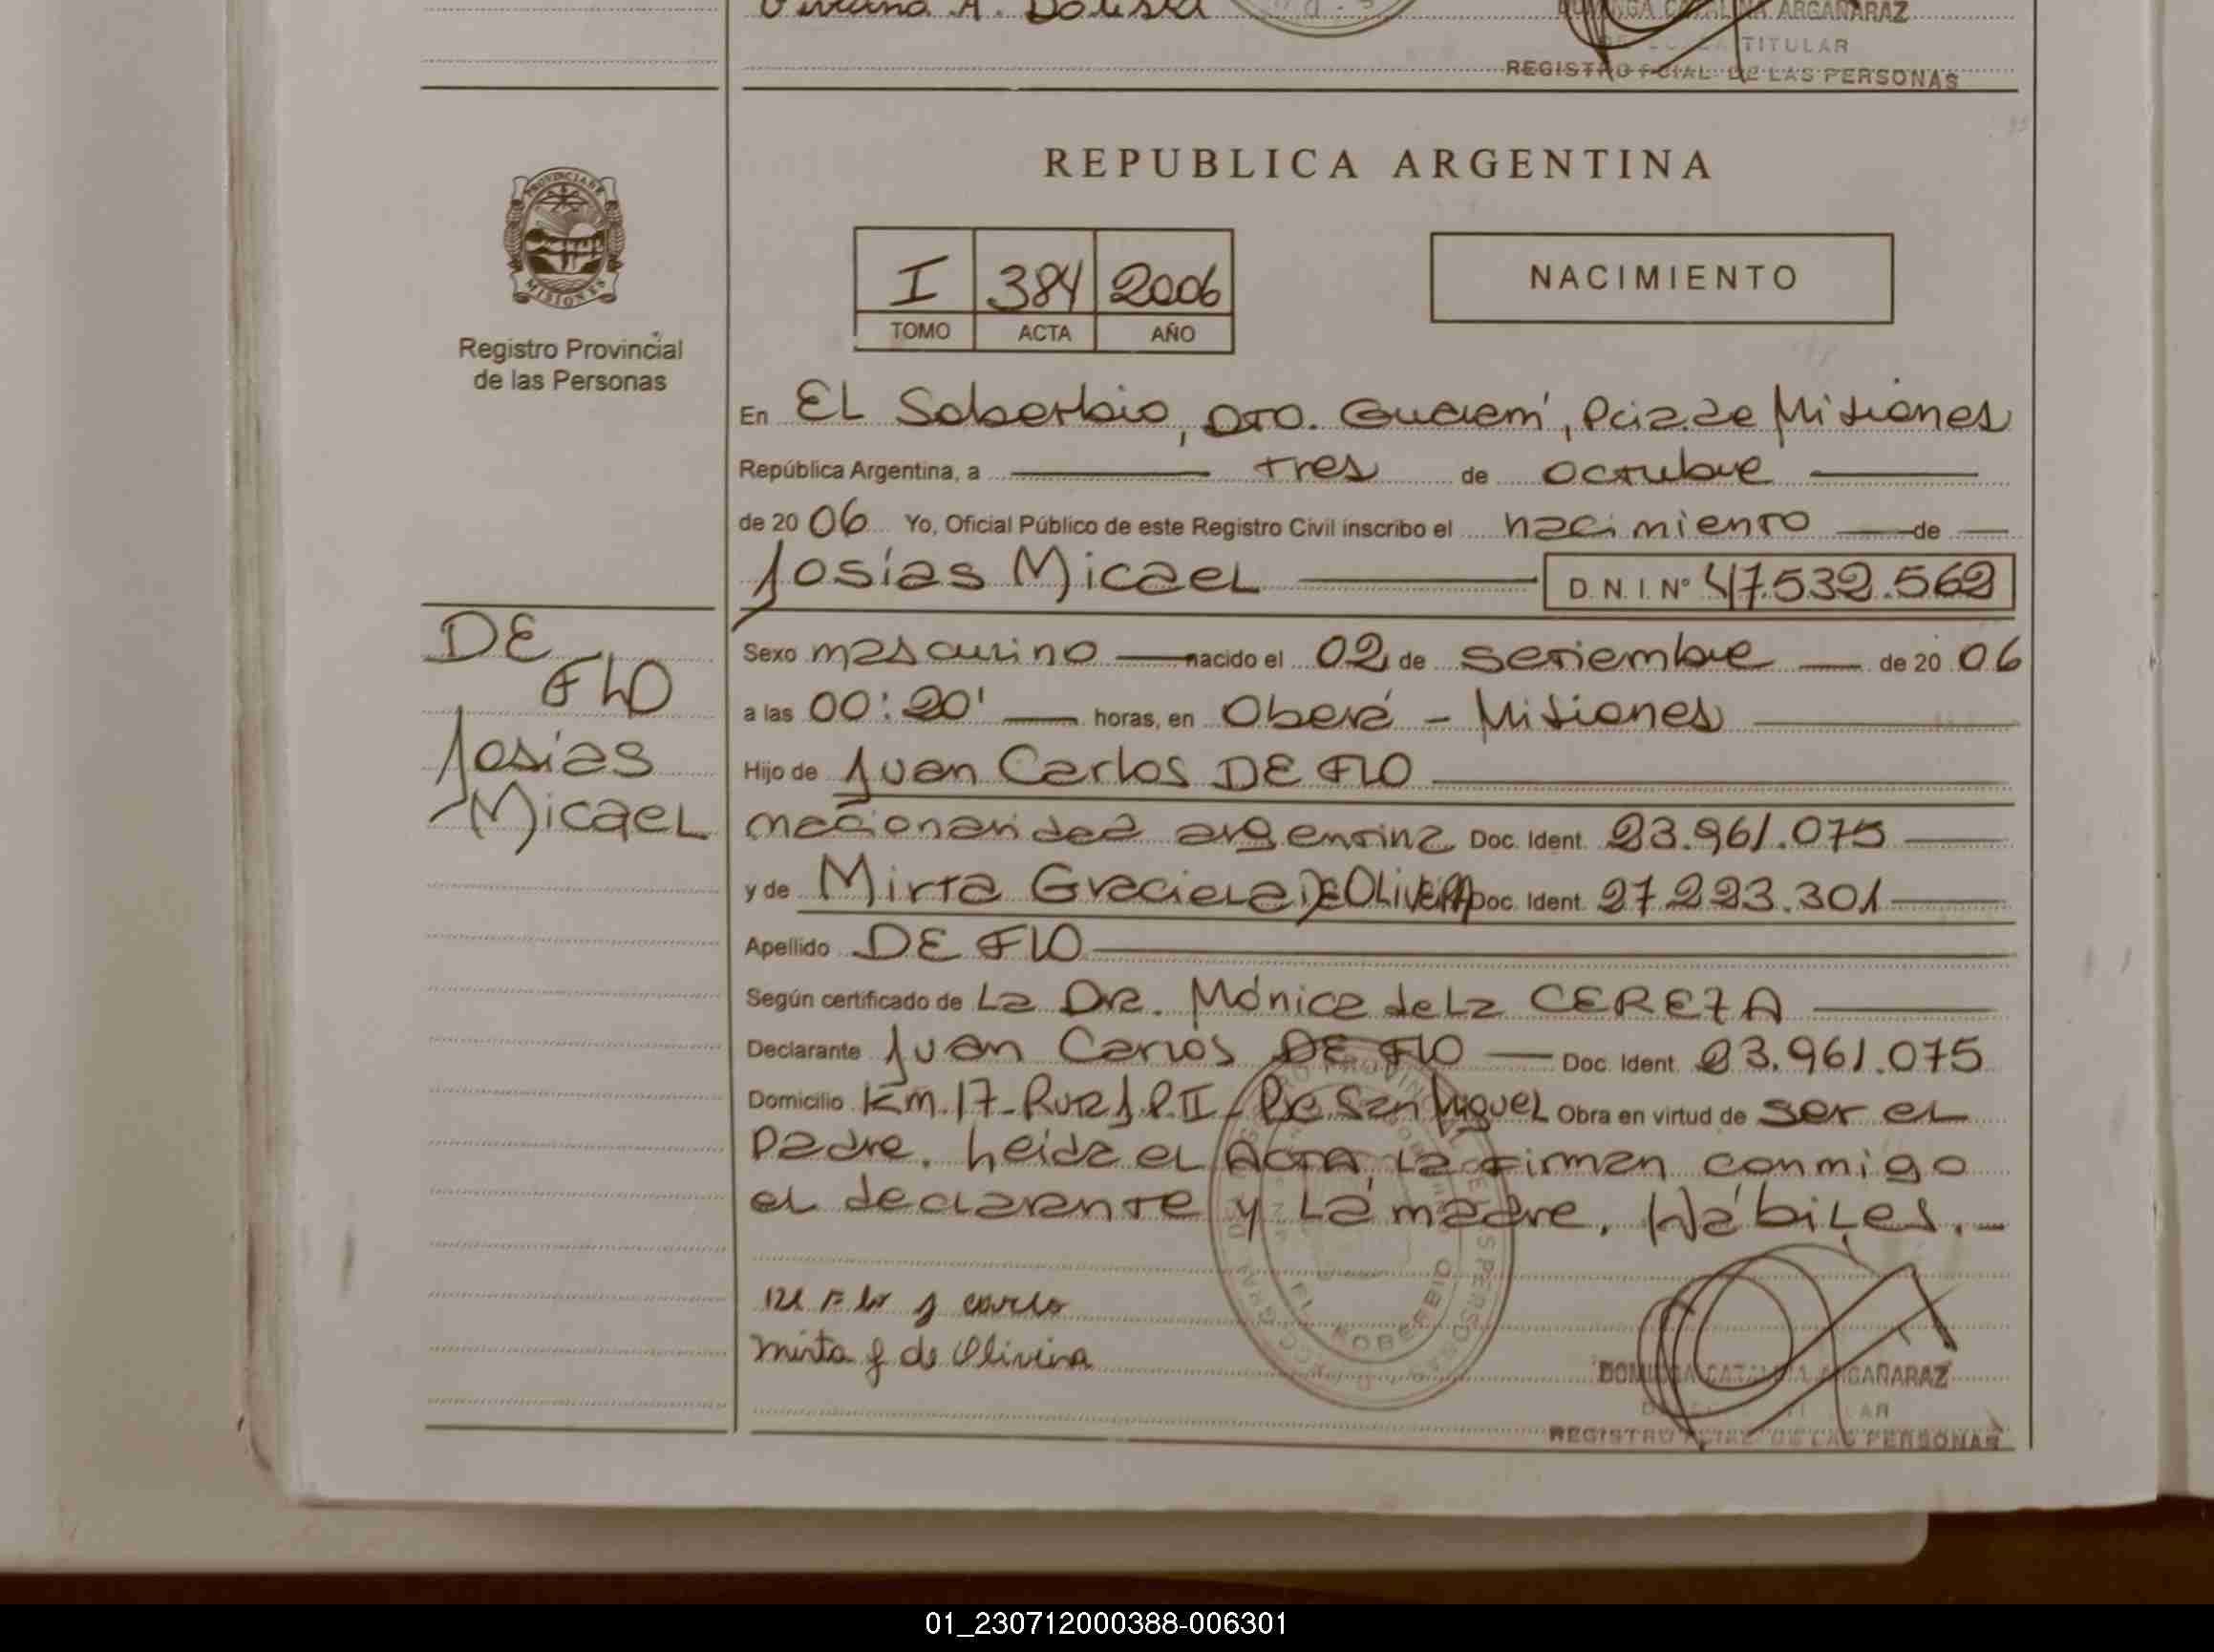 Viviana A. Dolista
ARGAÑARAZ
TITULAR
REGISTRO PCIAL. DE LAS PERSONAS
PROVINCIA DE
MISIONES
Registro Provincial
de las Personas
REPUBLICA ARGENTINA
I 384 2006
TOMO ACTA AÑO
NACIMIENTO
En EL Soberbio, Dto. Guaraní, Pcia. de Misiones
República Argentina, a tres de octubre
de 20 06 Yo, Oficial Público de este Registro Civil inscribo el nacimiento de
Josías Micael D. N. I. Nº 47.532.562
DE
FLO
Josías
Micael
Sexo masculino nacido el 02 de setiembre de 20 06
a las 00:20' horas, en Oberá - Misiones
Hijo de Juan Carlos DE FLO
nacionalidad argentina Doc. Ident. 23.961.075
y de Mirta Graciela DE OLIVEIRA Doc. Ident. 27.223.301
Apellido DE FLO
Según certificado de La Dra. Mónica de La CEREZA
Declarante Juan Carlos DE FLO Doc. Ident. 23.961.075
Domicilio Km. 17 - Ruta J. P. II San Miguel Obra en virtud de ser el
Padre. Leída el Acta la firman conmigo
el declarante y La madre. Hábiles.
carlo
Mirta g de Oliveira
EL SOBERBIO
DOMINGA CATALINA ARGAÑARAZ
REGISTRO PCIAL. DE LAS PERSONAS
01_230712000388-006301